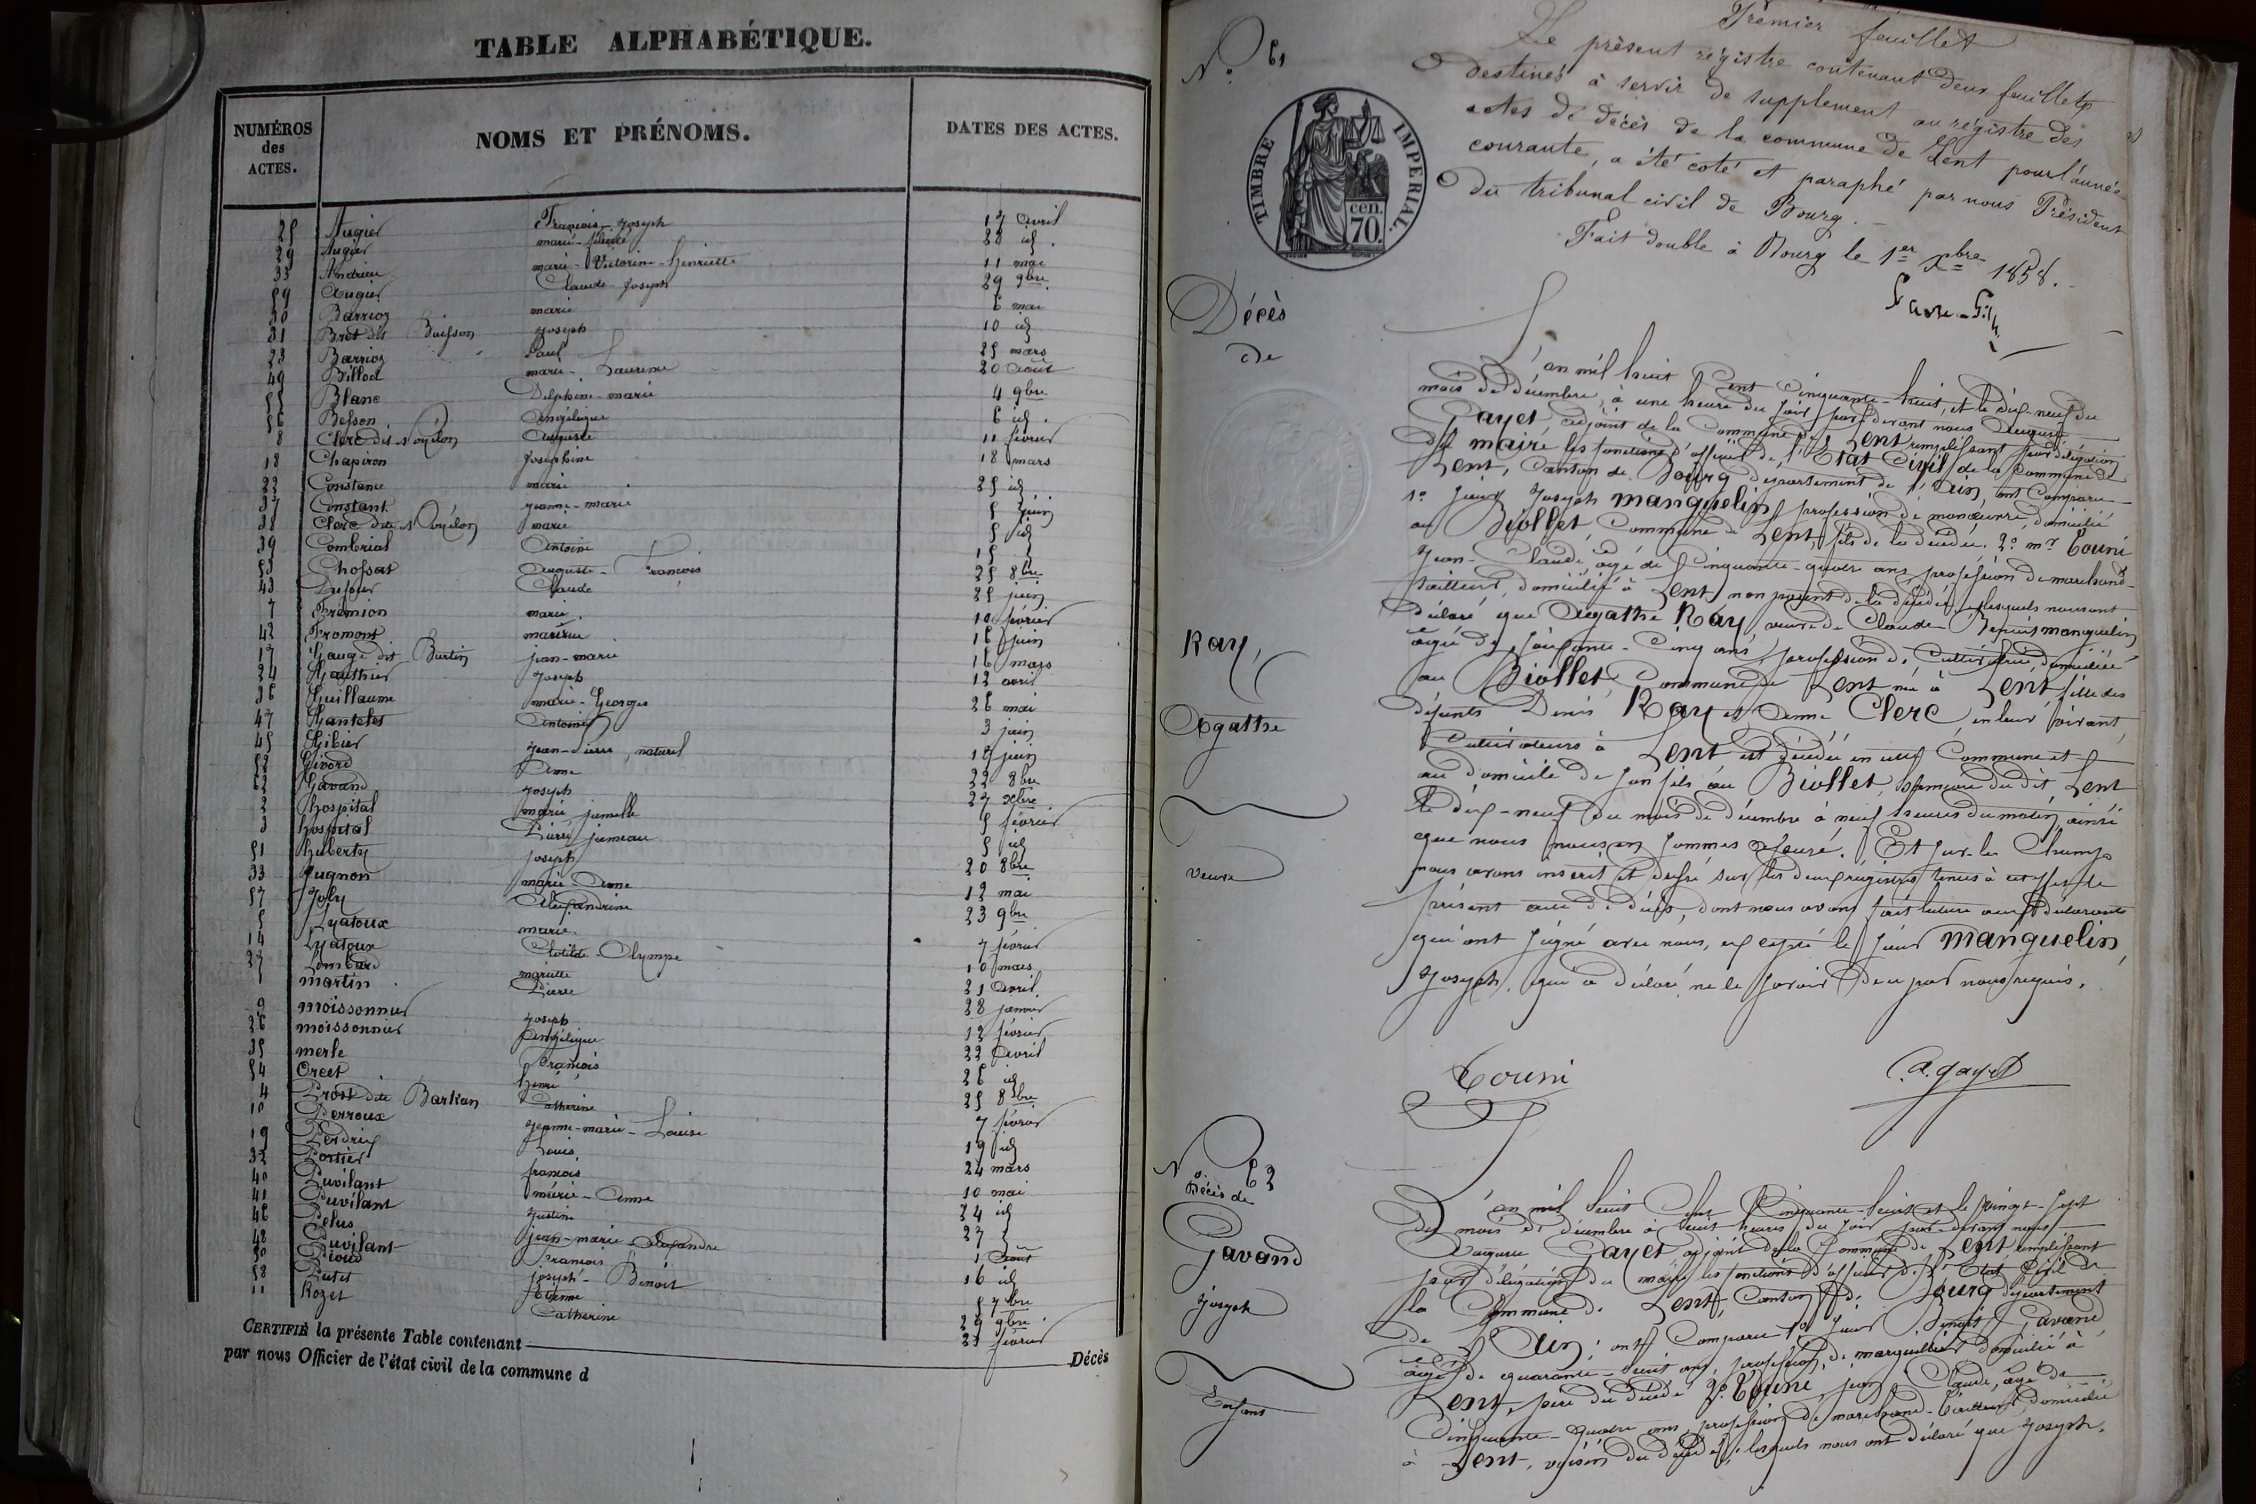 TABLE ALPHABÉTIQUE.
NUMÉROS des ACTES. NOMS ET PRÉNOMS. DATES DES ACTES.
25 Augier François-Joseph 17 avril
29 Augier 28 id.
35 Andrieu marie-Victorine-henriette 11 mai
59 Augier Claude Joseph 29 9bre.
30 Barrioz marie 6 mai
31 Bret dit Buisson Joseph 10 id
23 Barrioz Paul 25 mars
49 Billod marie-Laurine 20 Août
55 Blanc Delphine-marie 4 9bre
56 Besson Angélique 6 id.
8 Clerc dit Noyélon Auguste 11 février
18 Chapiron Josephine 18 mars
22 Constance marie 25 id
37 Constant jeanne-marie 5 juin
38 Clerc dite Noyélon marie 5 id
39 Combrial Antoine 15
53 Chossat Auguste-François 25 8bre
43 Dufour Claude 25 juin
7 Frémion marie 10 février
42 Fromont 16 juin
17 Gauge dit Burtin jean-marie 16 mars
24 Gauthier Joseph 12 avril
36 Guillaume marie-Georges 26 mai
47 Gantelet Antoine 3 juin
45 Gibier jean-Pierre, naturel 15 juin
52 Givord Anne 22 8bre
62 Gavand Joseph 27 xbre
2 hospital marie jumelle 5 février
3 hospital Pierre jumeau 5 id
51 huberty joseph 20 8bre
33 Jugnon marie Anne 12 mai
57 Joly Alexandrine 23 9bre
5 Lyatoux marie 7 février
14 Lyatoux Clotilde Olympe 10 mars
27 Lombard mariette 21 Avril
1 martin Pierre 28 janvier
9 moissonnier Joseph 12 février
26 moissonnier Angélique 22 Avril
35 merle François 26 id
54 Orcet henri 25 8bre
4 Prost dite Barkan Catherine 7 février
10 Perroux Jeanne-marie-Louise 19 id
19 Perdrix Louis 24 mars
32 Portier françois 10 mai
40 Puvilant marie-Anne 24 id
41 Puvilant Justine 27
46 Pelus jean-marie Alexandre 1 Août
48 Puvilant François 16 id
50 Pioud joseph-Benoit 5 7bre
58 Putet Etienne 29 9bre
11 Rozet Catherine 23 février
CERTIFIÉ la présente Table contenant Décès
par nous Officier de l'état civil de la commune d
Premier feuillet
Le présent régistre contenant deux feuillets
destinés à servir de supplement au régistre des
actes de décès de la commune de Lent pour l'année
courante, a été coté et paraphé par nous Président
du tribunal civil de Bourg.-
Fait double à Bourg le 1er xbre 1858.-
TIMBRE IMPERIAL.
cen. 70.
N° 61
Décès
de
Ray,
Agathe
veuve
L'an mil huit Cent Cinquante-huit, et le dix-neuf du
mois de décembre, à une heure du soir, par devant nous Auguste
Gayet, adjoint de la Commune de Lent remplissant par délégation
du maire les fonctions d'officier de l'Etat Civil de la Commune de
Lent, Canton de Bourg département de l'Ain, ont Comparu
1° sieur Joseph manquelin, profession de manœuvre, domicilié
au Biollet, Commune de Lent, fils de la décédée. 2° mr Couni
Jean-Claude, âgé de Cinquante-quatre ans, profession de marchand-
tailleur, domicilié à Lent, non parent de la décédée, lesquels nous ont
déclaré que Agathe Ray, veuve de Claude manquelin
âgée de soixante-Cinq ans, profession de Cultivatrice, domiciliée
au Biollet, Commune de Lent née à Lent, fille des
défunts Denis Ray et Anne Clerc, en leur vivant,
Cultivateurs à Lent, est décédée en cette Commune et
au domicile de son fils au Biollet, Commune du dit Lent
le dix-neuf du mois de décembre à neuf heures du matin, ainsi
que nous nous en sommes assuré. Et sur-le Champ
nous avons inscrit et dressé sur les deux régistres tenus à cet effet le
présent acte de décès, dont nous avons fait lecture aux déclarants
qui ont signé avec nous, excepté le sieur manquelin,
Joseph, qui a déclaré ne le savoir de ce par nous requis.
Couni A. gayet
N° 62
Décès de
Gavand
Joseph
Enfant
L'an mil huit Cent Cinquante-huit et le vingt-sept
du mois de décembre à huit heures du soir par devant nous
Auguste Gayet, adjoint de la Commune de Lent remplissant
par délégation du maire les fonctions d'officier de l'Etat Civil de
la Commune de Lent, Canton de Bourg département
de l'Ain; ont Comparu 1° sieur Benoit Gavand,
âgé de quarante-huit ans, profession de marguillier domicilié à
Lent, père du décédé 2° Couni, jean Claude, âgé de
Cinquante-quatre ans, profession de marchand-tailleur, domicilié
à Lent, voisin du décédé, lesquels nous ont déclaré que Joseph,